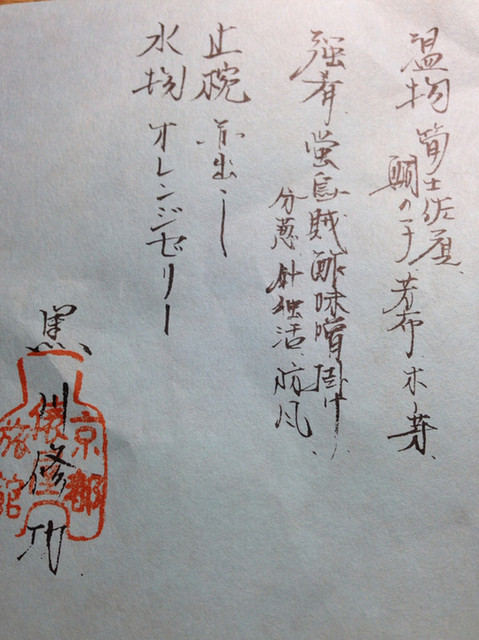 温物 筍土佐煮
鯛の子 若布 木ノ芽
強肴 蛍烏賊酢味噌掛け
分葱 針独活 防風
止椀 赤出し
水物 オレンジゼリー
黒川修功
京都
俵屋
旅館